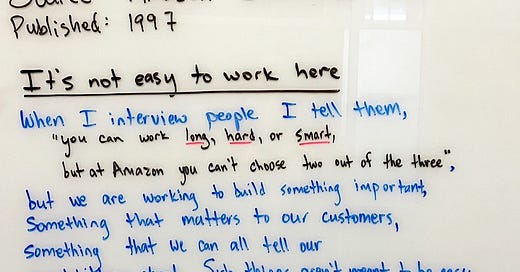 Published: 1997
It's not easy to work here
When I interview people I tell them,
"you can work long, hard, or smart,
but at Amazon you can't choose two out of the three",
but we are working to build something important,
Something that matters to our customers,
Something that we can all tell our
Such things aren't meant to be easy